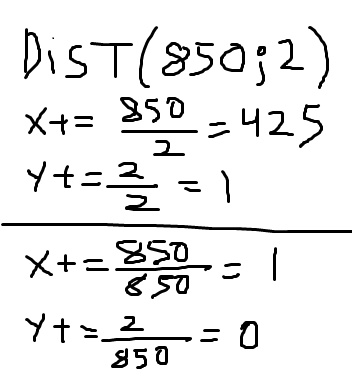 DiST(850;2)
X+= 850/2 = 425
Y+= 2/2 = 1
X+= 850/850 = 1
Y+= 2/850 = 0